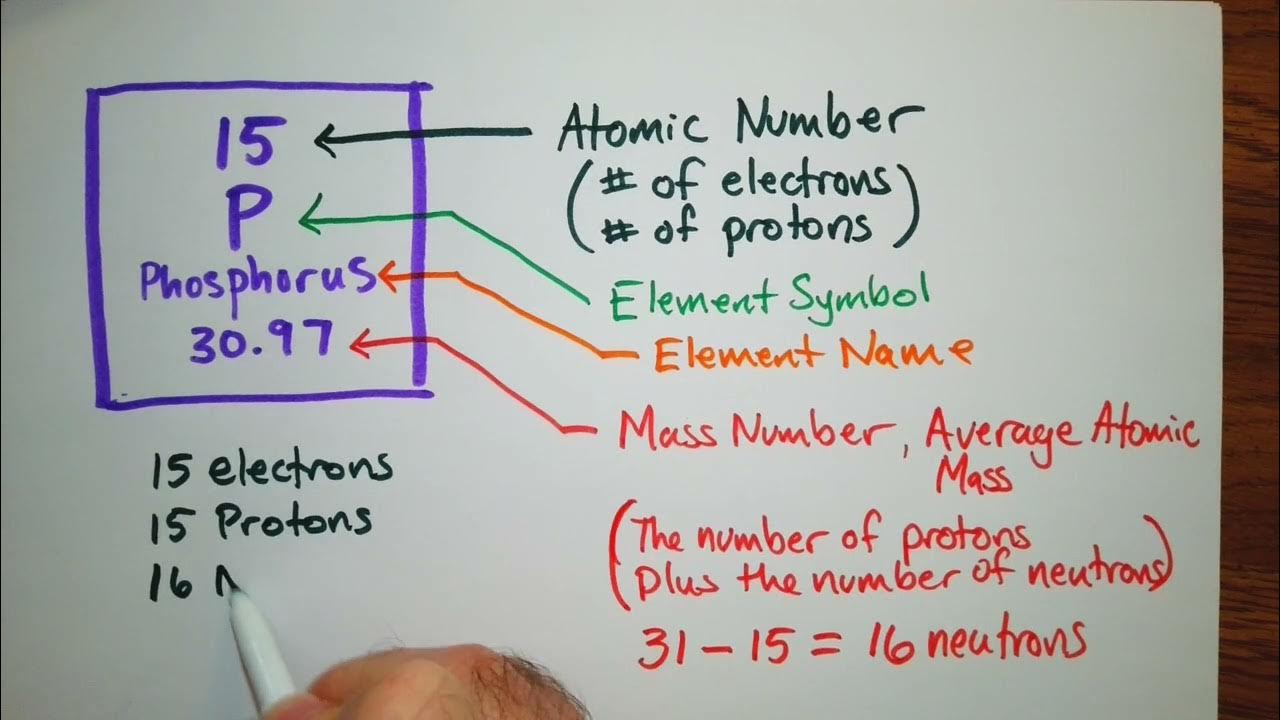 15
P
Phosphorus
30.97
Atomic Number
(# of electrons
# of protons)
Element Symbol
Element Name
Mass Number, Average Atomic
Mass
(The number of protons
plus the number of neutrons)
31 - 15 = 16 neutrons
15 electrons
15 Protons
16 N